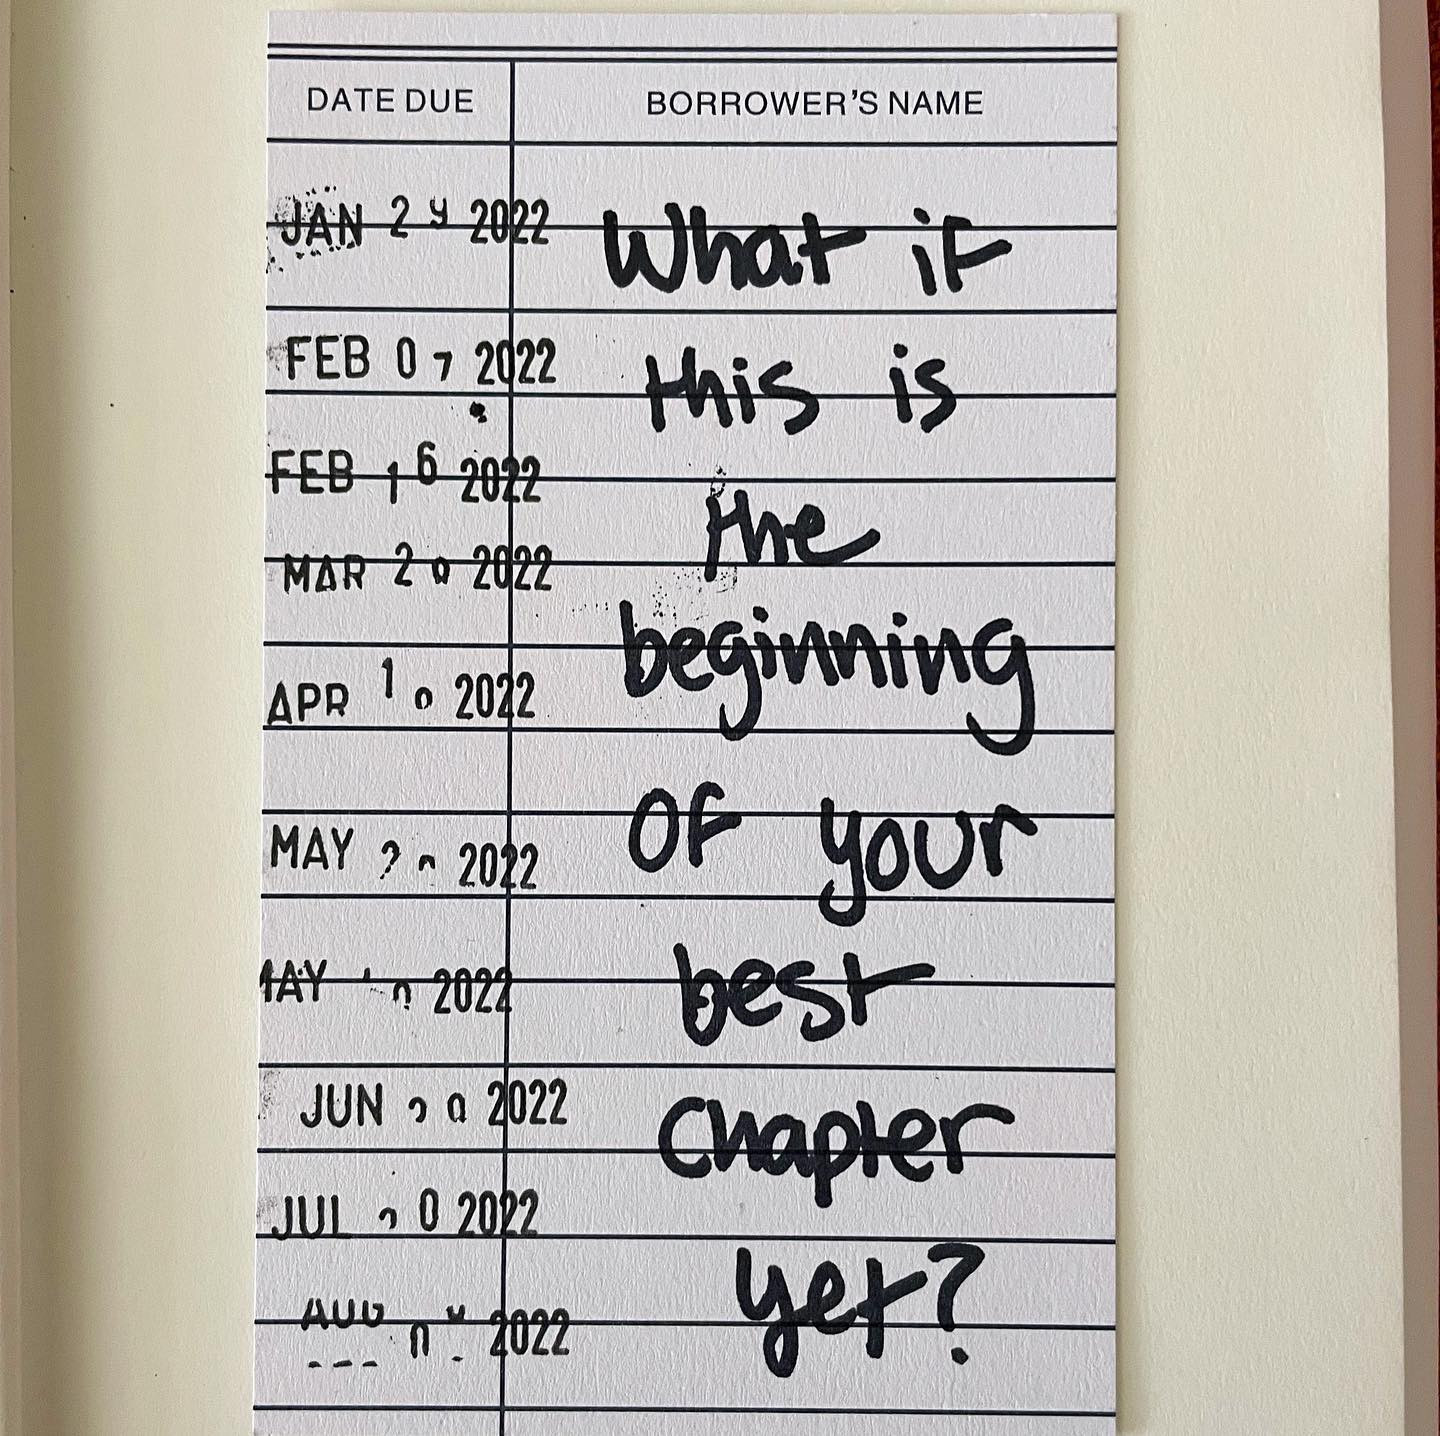 DATE DUE BORROWER'S NAME
JAN 2 2022 What if
FEB 07 2022 this is
FEB 16 2022
the
MAR 20 2022
beginning
APR 10 2022
of your
MAY 2022
best
2022
JUN 2022 chapter
JUL 2022
yet?
AUG 2022